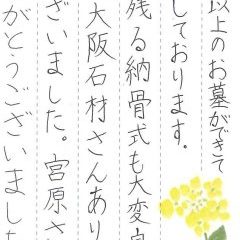 以上のお墓ができて
しております。
残る納骨式も大変
大阪石材さんあり
ざいました。宮原さ
がとうございました